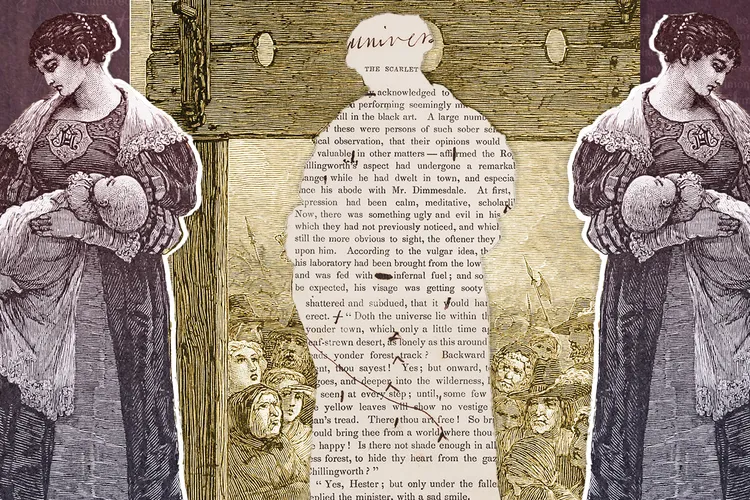 univers
THE SCARLET
acknowledged to
performing seemingly m
kill in the black art. A large numb
these were persons of such sober
ical observation, that their opinions would
valuable in other matters — affirmed the Ro
hillingworth's aspect had undergone a remarkab
ange while he had dwelt in town, and especia
ince his abode with Mr. Dimmesdale. At first,
expression had been calm, meditative, scholarli
Now, there was something ugly and evil in his
which they had not previously noticed, and which
still the more obvious to sight, the oftener they
upon him. According to the vulgar idea, th
his laboratory had been brought from the low
and was fed with infernal fuel; and so
be expected, his visage was getting sooty
shattered and subdued, that it could har
erect. "Doth the universe lie within th
yonder town, which only a little time a
eaf-strewn desert, as lonely as this around
eads yonder forest-track? Backward
nt, thou sayest! Yes; but onward, to
goes, and deeper into the wilderness, l
seen at every step; until, some few
yellow leaves will show no vestige
an's tread. There thou art free! So br
would bring thee from a world where thou
happy! Is there not shade enough in all
ess forest, to hide thy heart from the gaz
Chillingworth?"
"Yes, Hester; but only under the falle
replied the minister, with a sad smile.